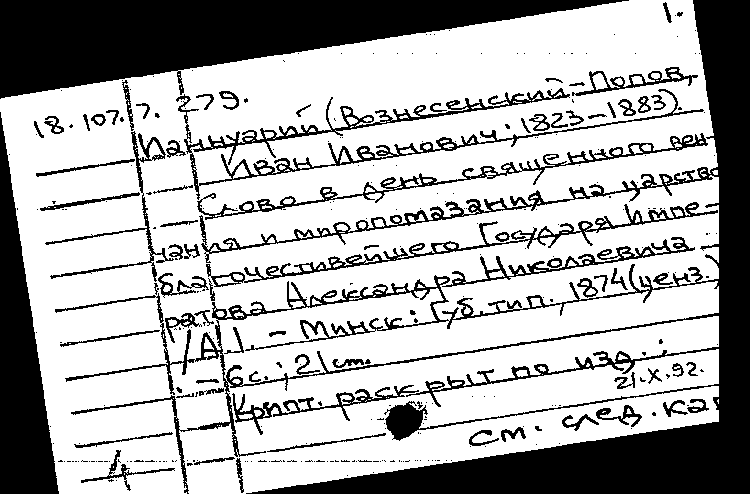 1.
18.107.7. 279.
Ианнуарий (Вознесенский-Попов,
Иван Иванович; 1823-1883).
Слово в день священного вен-
чания и миропомазания на царство
благочестивейшего Государя Импе-
ратора Александра Николаевича
/А.I. - Минск: Губ. тип., 1874 (ценз.)
. - 6с.; 21 cm.
Крипт. раскрыт по изд.;
21.X.92.
См. след. кар
4